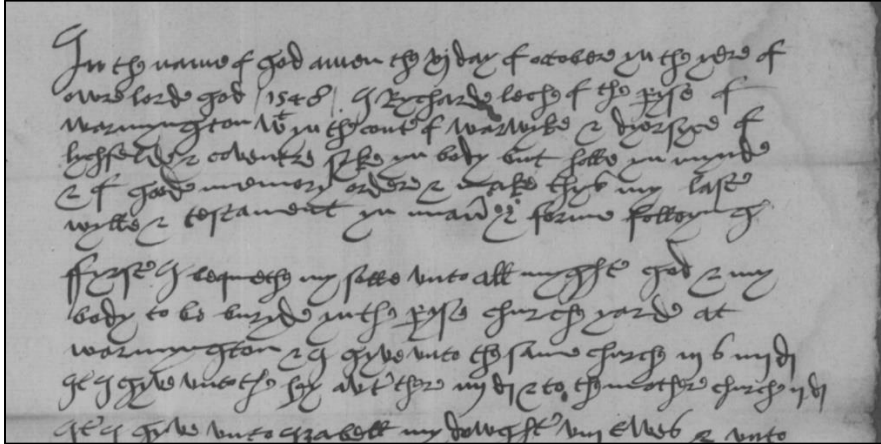 In the name of god amen the vj day of octobere yn the yere of
owre lorde god 1548 I Rycharde leche of the pyse of
warmyngton wt yn the conte of warwyke & dyosyce of
lychfelde & coventre syke yn body but holle yn mynde
& of goode memory ordere & make thys my laste
wylle & testament yn man & forme folloyng
fyrste I bequethe my solle unto all myghte god & my
body to be buryde yn the pyse churche yarde at
warmyngton & I gyve unto the same churche iij s iiij d
Ite I gyve unto the hy awter there iiij d & to the mother churche ij d
Ite I gyve unto Izabell my dowghte viij ewes & unto